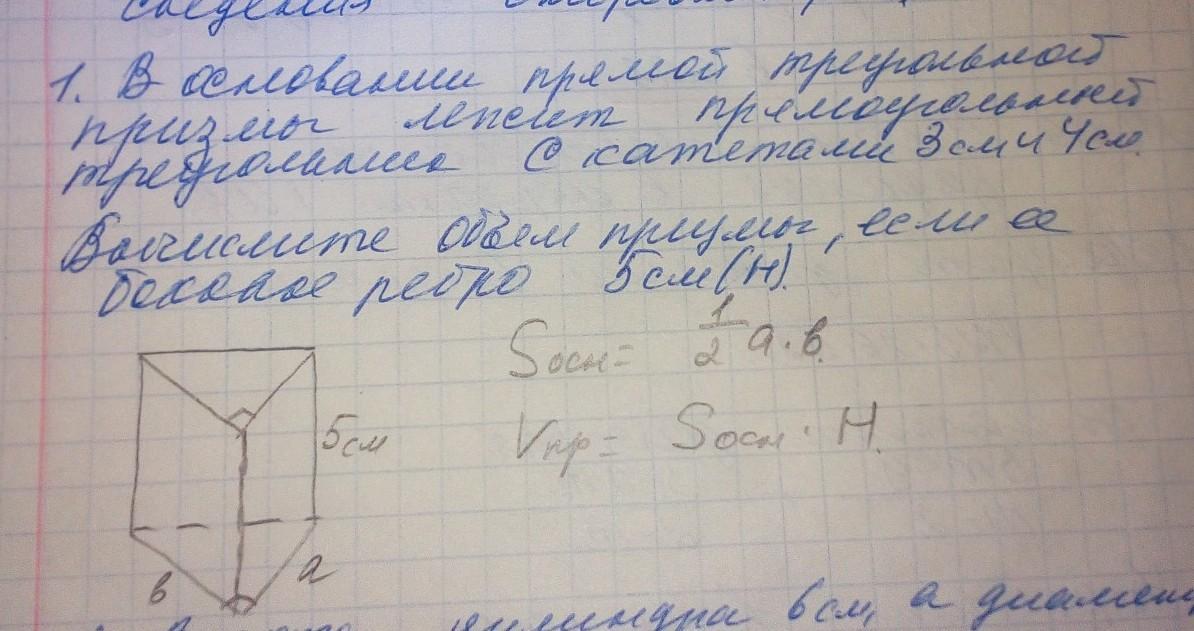 сведения
1. В основании прямой треугольной
призмы лежит прямоугольный
треугольник с катетами 3 см и 4 см.
Вычислите объем призмы, если ее
боковое ребро 5 см (H).
Sосн = 1/2 a · в.
5 см
Vпр = Sосн · H.
в a
цилиндра 6 см, а диамет